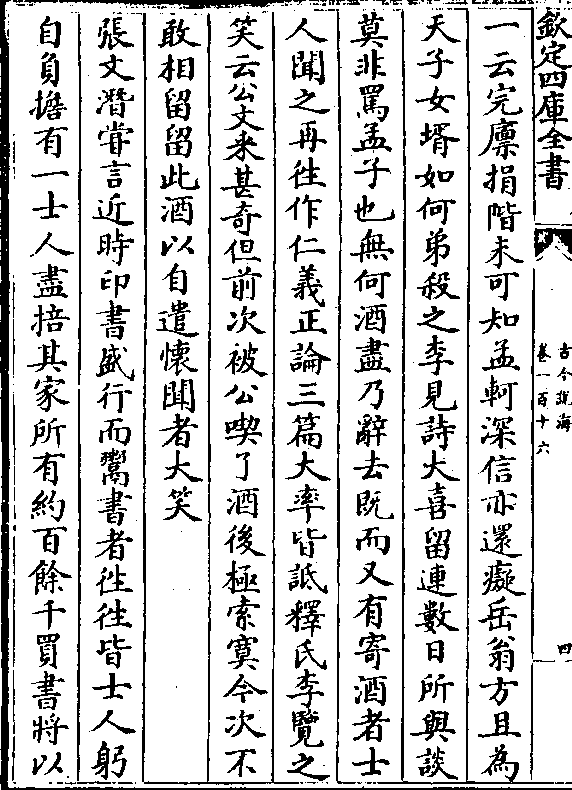 欽定四庫全書
古今說海
卷一百十六
四
一云完廪捐階未可知孟軻深信亦還癡岳翁方且為
天子女壻如何弟殺之李見詩大喜留連數日所與談
莫非罵孟子也無何酒盡乃辭去既而又有寄酒者士
人聞之再徃作仁義正論三篇大率皆詆釋氏李覽之
笑云公文采甚奇但前次被公喫了酒後極索寞今次不
敢相留留此酒以自遣懷聞者大笑
張文潛嘗言近時印書盛行而鬻書者徃徃皆士人躬
自負擔有一士人盡掊其家所有約百餘千買書將以